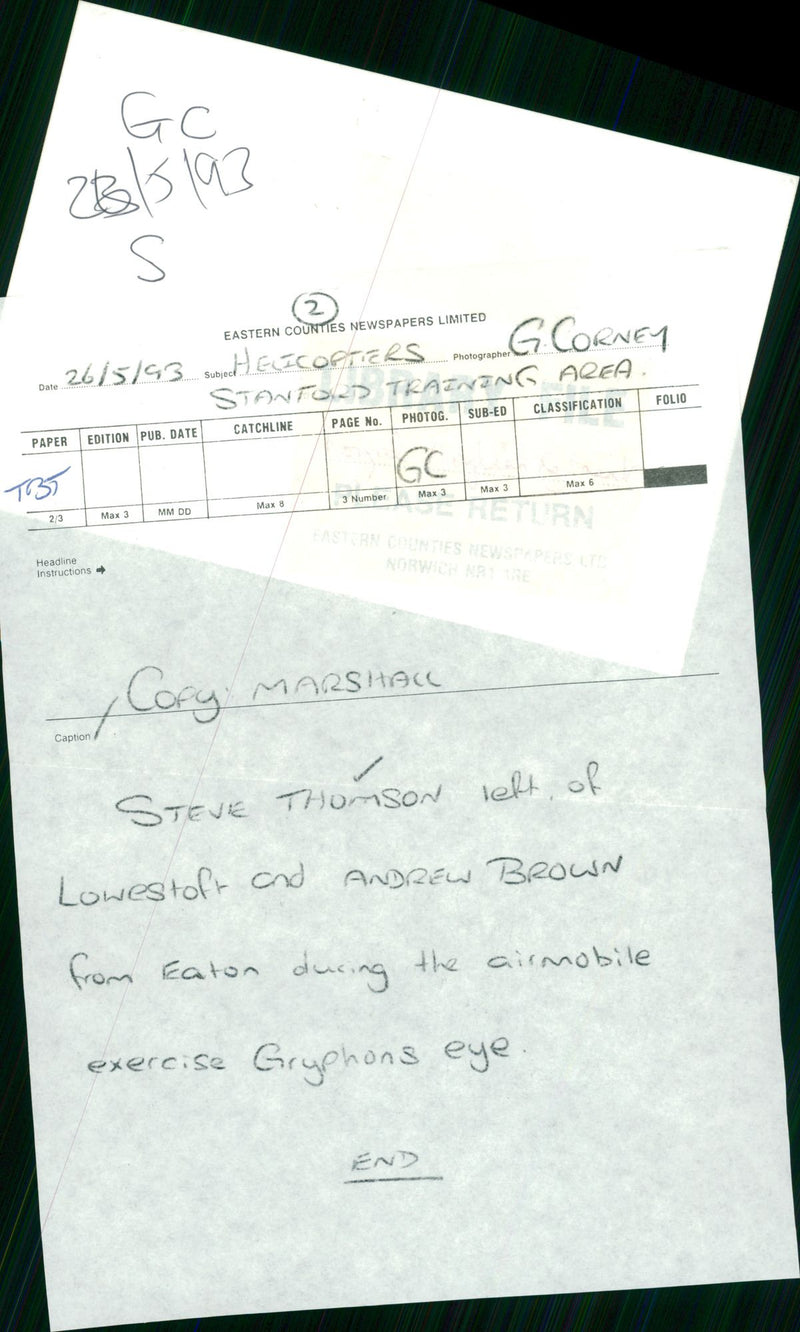 GC
/5/93
S
2
EASTERN COUNTIES NEWSPAPERS LIMITED
Date 26/5/93 Subject HELICOPTERS Photographer G. CORNEY
STANFORD TRAINING AREA.
PAPER EDITION PUB. DATE CATCHLINE PAGE No. PHOTOG. SUB-ED CLASSIFICATION FOLIO
GC
2/3 Max 3 MM DD Max 8 3 Number Max 3 Max 3 Max 6
LIBRARY FILE
PLEASE RETURN
EASTERN COUNTIES NEWSPAPERS LTD
NORWICH NR1 1RE
Headline
Instructions
Copy: MARSHALL
Caption
STEVE THOMSON left, of
Lowestoft and ANDREW BROWN
from Eaton during the airmobile
exercise Gryphons eye.
END